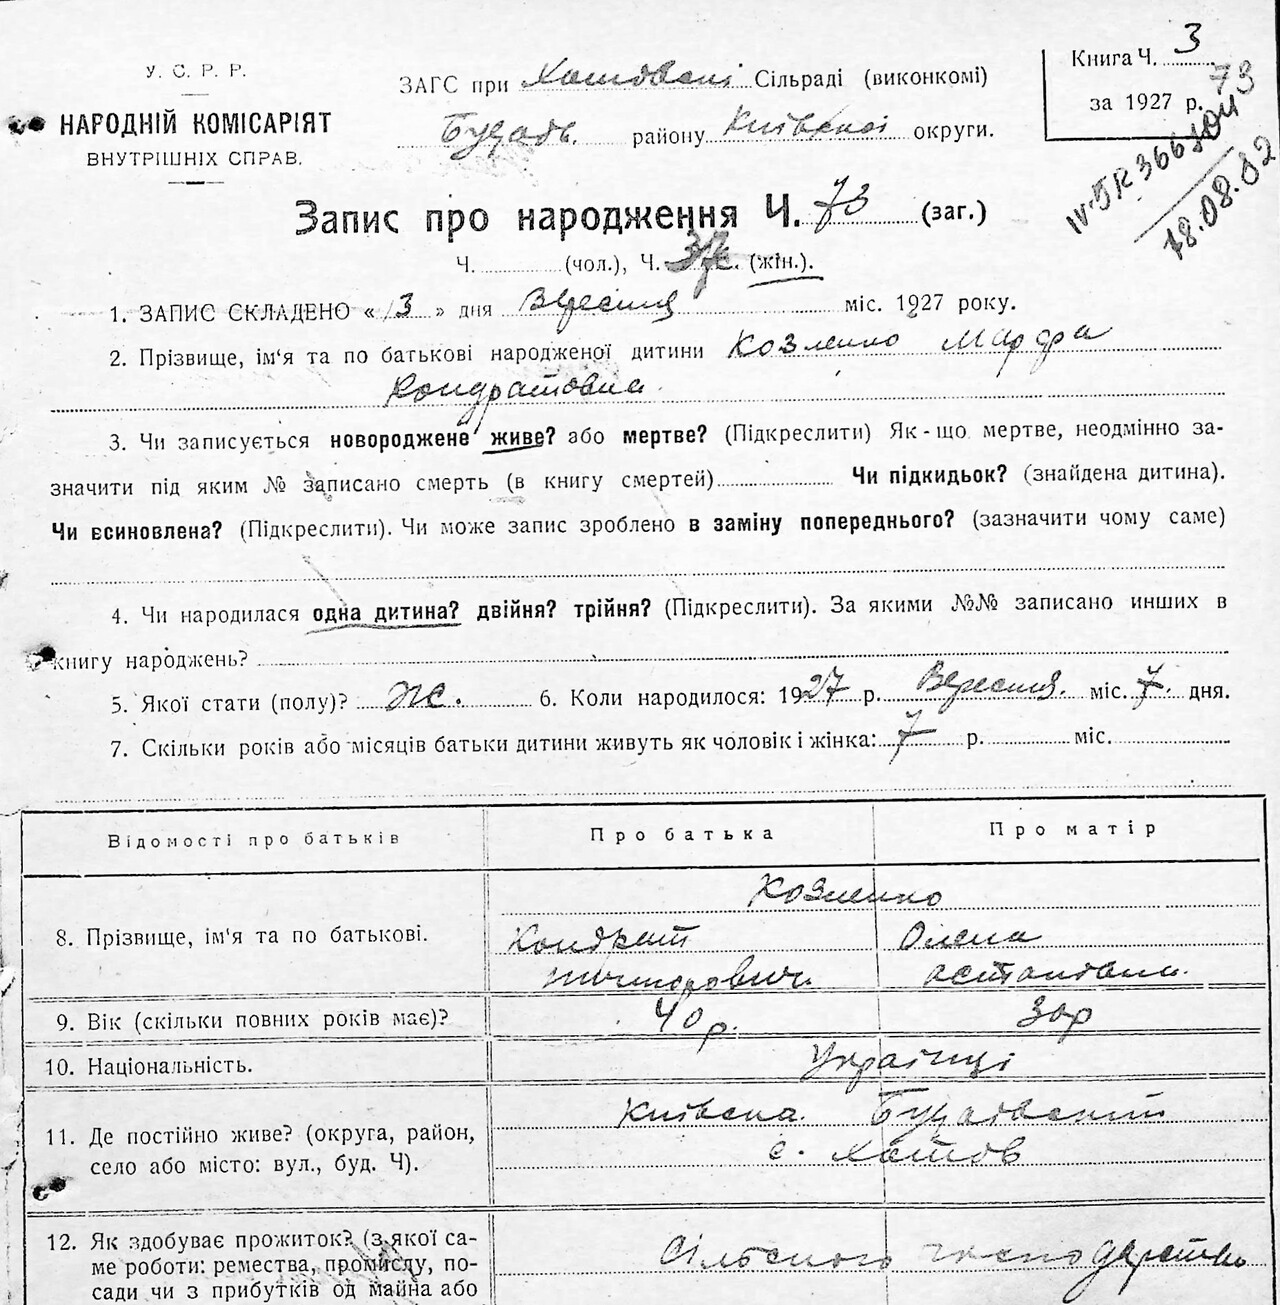 У. С. Р. Р.
НАРОДНІЙ КОМІСАРІЯТ
ВНУТРІШНІХ СПРАВ.
ЗАГС при Хотовскі Сільраді (виконкомі)
Будаєв. району Київської округи.
Книга Ч. 3
за 1927 р.
73
18.08.82
Запис про народження Ч. 73 (заг.)
Ч. (чол.), Ч. 37 (жін.).
1. ЗАПИС СКЛАДЕНО « 13 » дня Вересня міс. 1927 року.
2. Прізвище, ім'я та по батькові народженої дитини Козленко Марфа
Кондратовна
3. Чи записується новороджене живе? або мертве? (Підкреслити) Як-що мертве, неодмінно за-
значити під яким № записано смерть (в книгу смертей) Чи підкидьок? (знайдена дитина).
Чи всиновлена? (Підкреслити). Чи може запис зроблено в заміну попереднього? (зазначити чому саме)
4. Чи народилася одна дитина? двійня? трійня? (Підкреслити). За якими №№ записано инших в
книгу народжень?
5. Якої стати (полу)? Ж. 6. Коли народилося: 1927 р. Вересня міс. 7. дня.
7. Скільки років або місяців батьки дитини живуть як чоловік і жінка: 7 р. міс.
Відомості про батьків Про батька Про матір
Козленко
8. Прізвище, ім'я та по батькові. Кондрат Олена
9. Вік (скільки повних років має)? 40 р. 30 р
10. Національність. Українці
Київска Будаївский
11. Де постійно живе? (округа, район,
село або місто: вул., буд. Ч). с. Хотов
12. Як здобуває прожиток? (з якої са- Сільского господарства
ме роботи: ремества, промислу, по-
сади чи з прибутків од майна або